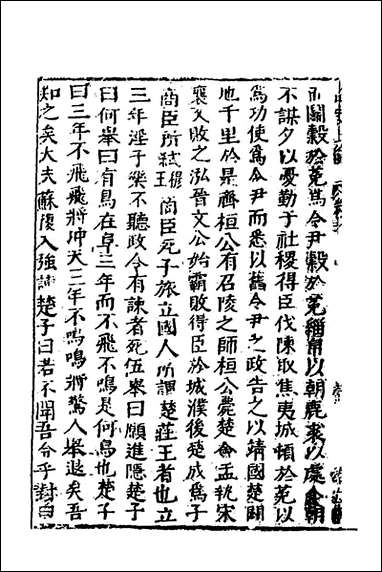 鬭穀於菟爲令尹穀於菟緇帛以朝鹿裘以處朝
不謀夕以憂勤于社稷得臣伐陳取焦夷城頓於菟以
爲功使爲令尹而悉以舊令尹之政告之以靖國楚闢
地千里於是齊桓公有召陵之師桓公薨楚會盂執宋
襄又敗之泓晉文公始霸敗得臣於城濮後楚成爲子
商臣所弑穆王商臣死子旅立國人所謂楚莊王者也立
三年淫于樂不聽政令有諫者死伍舉曰願進隱楚子
曰何舉曰有鳥在阜三年而不飛不鳴是何鳥也楚子
曰三年不飛飛將沖天三年不鳴鳴將驚人舉退矣吾
知之矣大夫蘇復入強諫楚子曰若不聞吾令乎對曰